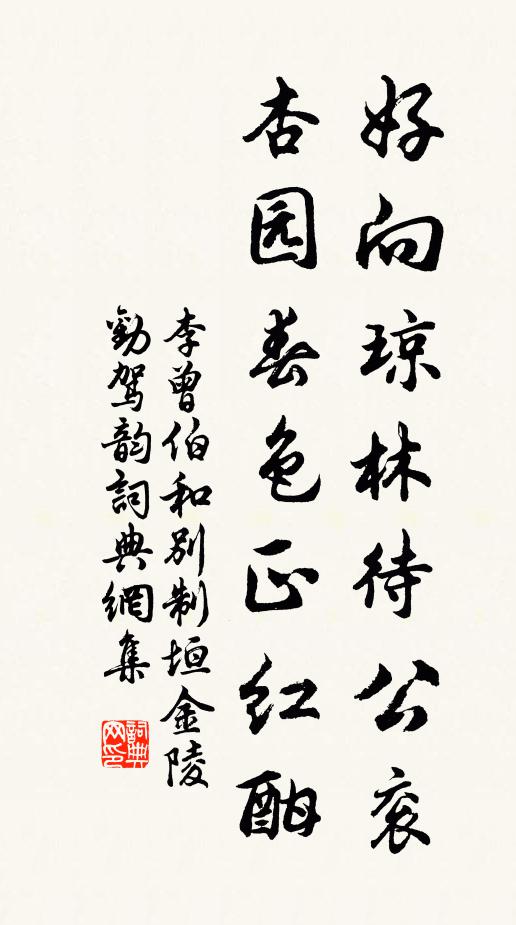 好向琼林待公衮
杏园春色正红酣
李曾伯和别制垣金陵
勸驾韵詞典網集
詞典网印